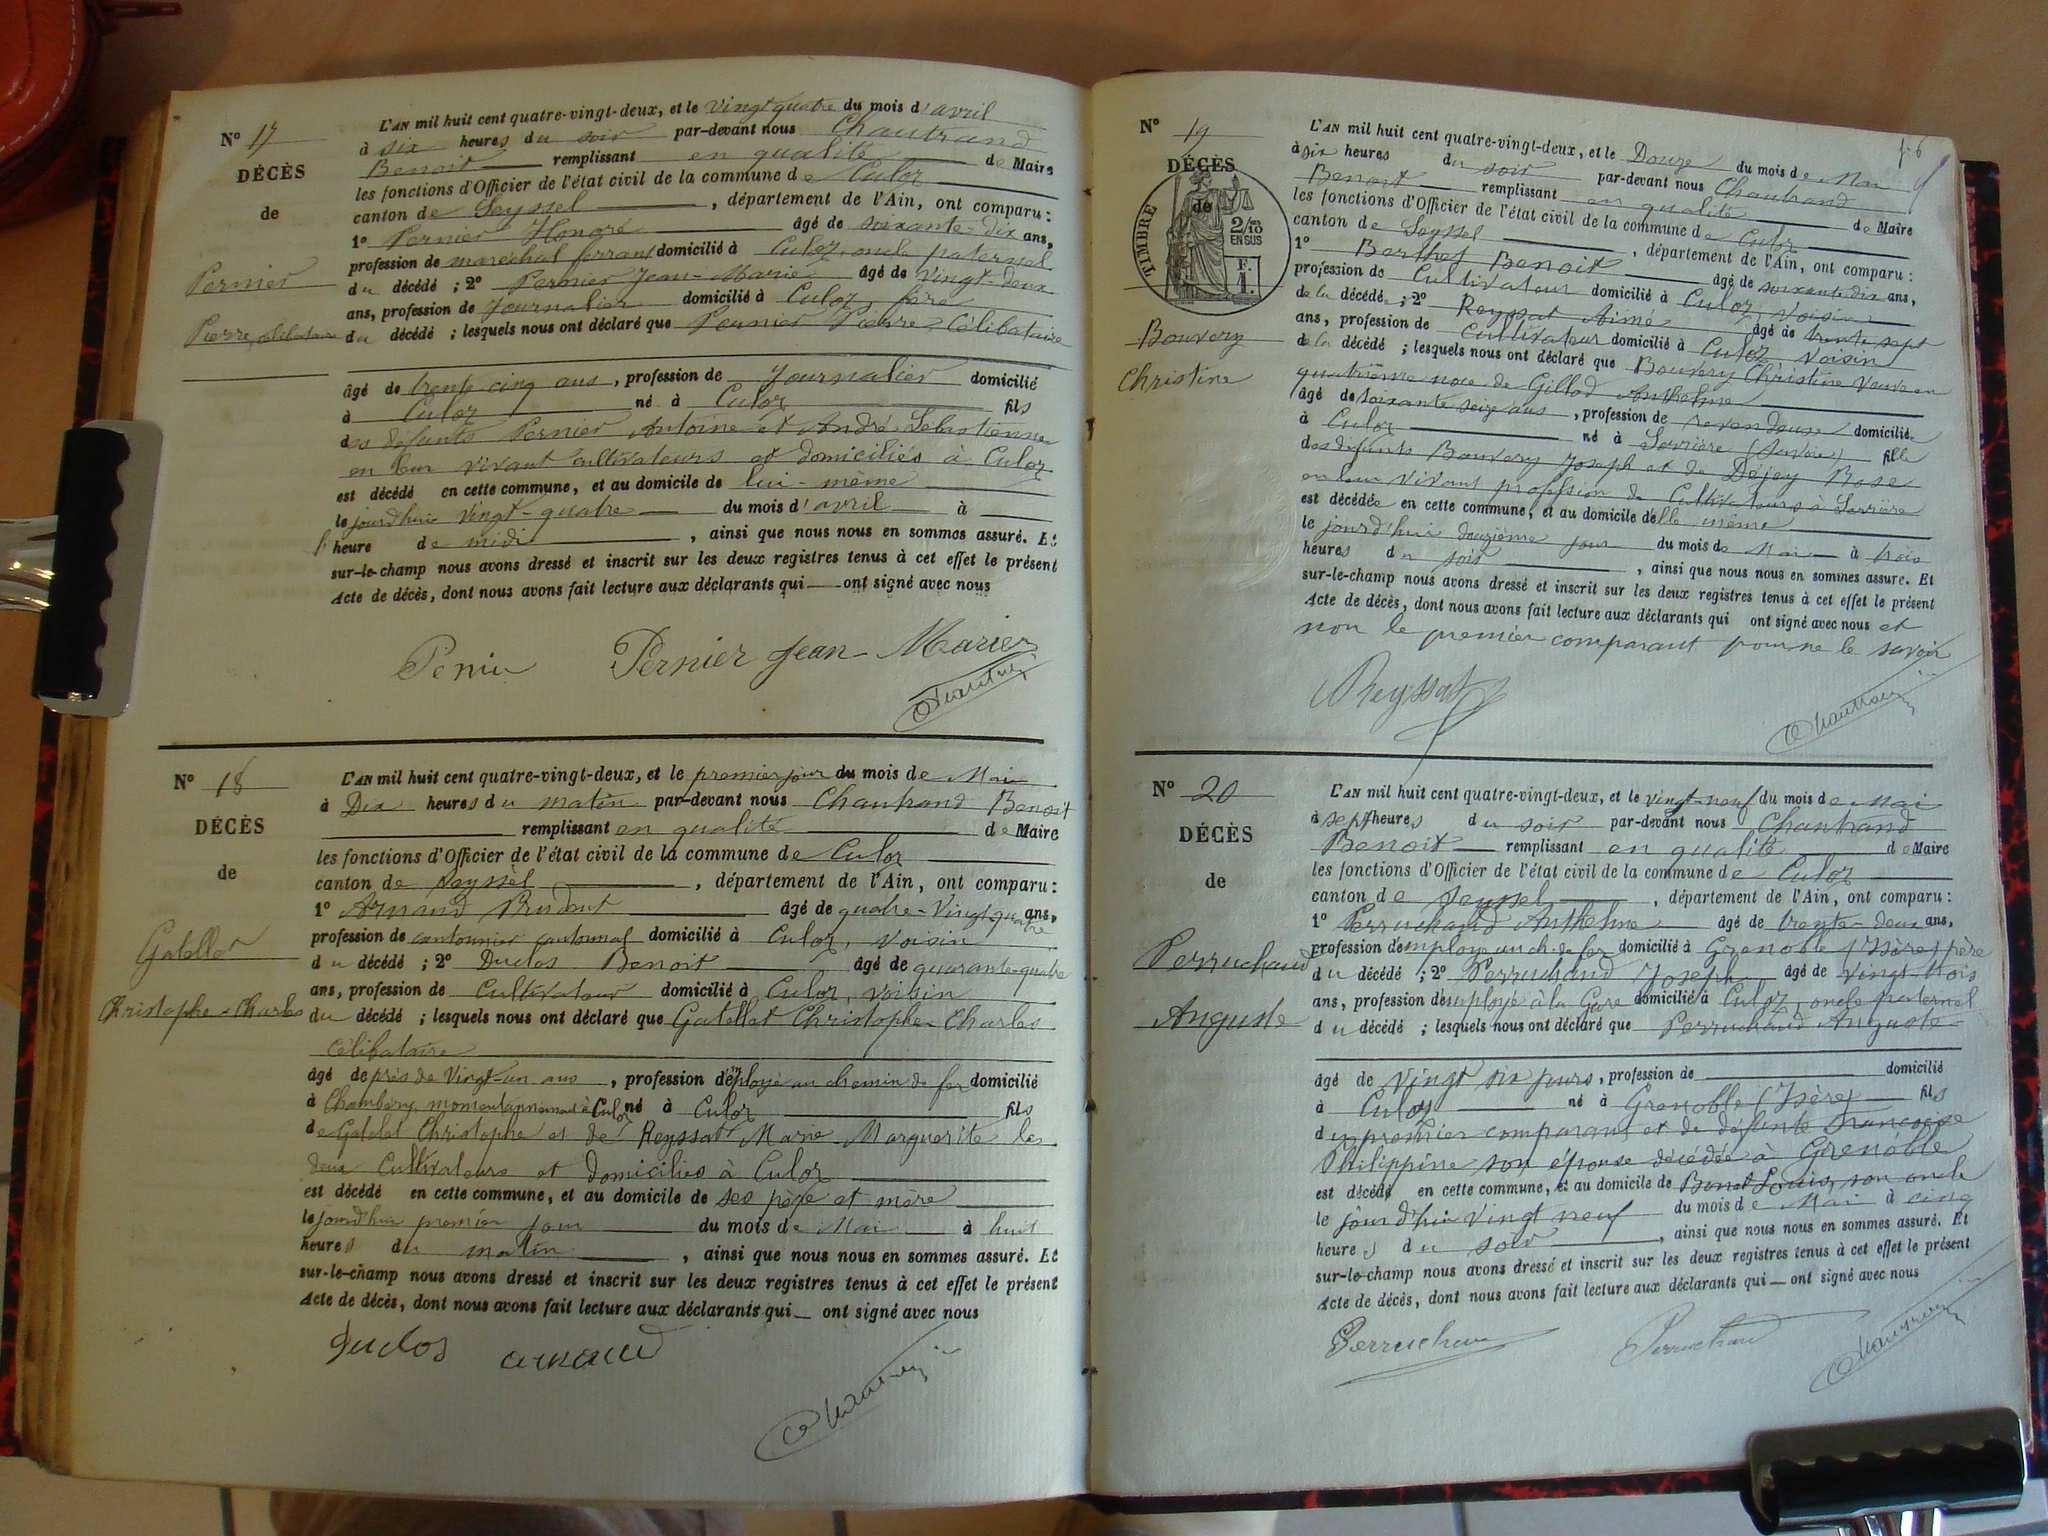 N° 17
DÉCÈS
de
Pernier
Pierre, célibataire
L'AN mil huit cent quatre-vingt-deux, et le vingt quatre du mois d'avril
à six heures du soir par-devant nous Chautrand
Benoit remplissant en qualité de Maire
les fonctions d'Officier de l'état civil de la commune de Culoz
canton de Seyssel, département de l'Ain, ont comparu :
1° Pernier Honoré âgé de soixante-dix ans,
profession de maréchal ferrant domicilié à Culoz, oncle paternel
du décédé ; 2° Pernier Jean-Marie âgé de vingt-deux
ans, profession de Journalier domicilié à Culoz, frère
du décédé ; lesquels nous ont déclaré que Pernier Pierre, Célibataire
âgé de trente cinq ans, profession de Journalier domicilié
à Culoz né à Culoz fils
des défunts Pernier Antoine et André Sébastienne
en leur vivant cultivateurs et domiciliés à Culoz
est décédé en cette commune, et au domicile de lui-même
le jourd'hui vingt-quatre du mois d'avril à
l'heure de midi, ainsi que nous nous en sommes assuré. Et
sur-le-champ nous avons dressé et inscrit sur les deux registres tenus à cet effet le présent
Acte de décès, dont nous avons fait lecture aux déclarants qui ont signé avec nous
Pernier Jean-Marie
N° 18
DÉCÈS
de
Gatellet
Christophe-Charles
L'AN mil huit cent quatre-vingt-deux, et le premier jour du mois de Mai
à Dix heures du matin par-devant nous Chautrand Benoit
remplissant en qualité de Maire
les fonctions d'Officier de l'état civil de la commune de Culoz
canton de Seyssel, département de l'Ain, ont comparu :
1° Arnaud Prudent âgé de quatre-Vingt quatre ans,
profession de cantonnier cantonnal domicilié à Culoz, voisin
du décédé ; 2° Duclos Benoit âgé de quarante-quatre
ans, profession de Cultivateur domicilié à Culoz, voisin
du décédé ; lesquels nous ont déclaré que Gatellet Christophe-Charles
célibataire
âgé de près de Vingt-un ans, profession d'employé au chemin de fer domicilié
à Chambéry, momentannément à Culoz né à Culoz fils
de Gatellet Christophe et de Reyssat Marie-Marguerite les
deux Cultivateurs et domiciliés à Culoz
est décédé en cette commune, et au domicile de ses père et mère
le jourd'hui premier jour du mois de Mai à huit
heures du matin, ainsi que nous nous en sommes assuré. Et
sur-le-champ nous avons dressé et inscrit sur les deux registres tenus à cet effet le présent
Acte de décès, dont nous avons fait lecture aux déclarants qui ont signé avec nous
Duclos arnaud
N° 19
DÉCÈS
de
TIMBRE
2/10
EN SUS
F.
1.
Bouvery
Christine
L'AN mil huit cent quatre-vingt-deux, et le Douze du mois de Mai
à six heures du soir par-devant nous Chautrand
Benoit remplissant en qualité de Maire
les fonctions d'Officier de l'état civil de la commune de Culoz
canton de Seyssel, département de l'Ain, ont comparu :
1° Berthet Benoit âgé de soixante dix ans,
profession de Cultivateur domicilié à Culoz, voisin
de la décédée ; 2° Reyssat Aimé âgé de trente sept
ans, profession de Cultivateur domicilié à Culoz, voisin
de la décédé ; lesquels nous ont déclaré que Bouvery Christine Veuve en
quatrième noce de Gillod Anthelme
âgé de soixante seize ans, profession de revendeuse domiciliée
à Culoz né à Serrière (Savoie) fille
des défunts Bouvery Joseph et de Déjey Rose
en leur vivant profession de Cultivateurs à Serrière
est décédée en cette commune, et au domicile d'elle même
le jourd'hui douzième jour du mois de Mai à trois
heures du soir, ainsi que nous nous en sommes assuré. Et
sur-le-champ nous avons dressé et inscrit sur les deux registres tenus à cet effet le présent
Acte de décès, dont nous avons fait lecture aux déclarants qui ont signé avec nous et
non le premier comparant pour ne le savoir
Reyssat
N° 20
DÉCÈS
de
Perruchaud
Auguste
L'AN mil huit cent quatre-vingt-deux, et le vingt-neuf du mois de Mai
à sept heures du soir par-devant nous Chautrand
Benoit remplissant en qualité de Maire
les fonctions d'Officier de l'état civil de la commune de Culoz
canton de Seyssel, département de l'Ain, ont comparu :
1° Perruchaud Anthelme âgé de trente-deux ans,
profession d'employé au ch. de fer domicilié à Grenoble (Isère) père
du décédé ; 2° Perruchaud Joseph âgé de vingt-trois
ans, profession d'employé à la Gare domicilié à Culoz, oncle paternel
du décédé ; lesquels nous ont déclaré que Perruchaud Auguste
âgé de vingt six jours, profession de domicilié
à Culoz né à Grenoble (Isère) fils
du premier comparant et de défunte Françoise
Philippine son épouse décédée à Grenoble
est décédé en cette commune, et au domicile de Benet Louis, son oncle
le jourd'hui vingt neuf du mois de Mai à cinq
heures du soir, ainsi que nous nous en sommes assuré. Et
sur-le-champ nous avons dressé et inscrit sur les deux registres tenus à cet effet le présent
Acte de décès, dont nous avons fait lecture aux déclarants qui ont signé avec nous
Perruchaud Perruchaud